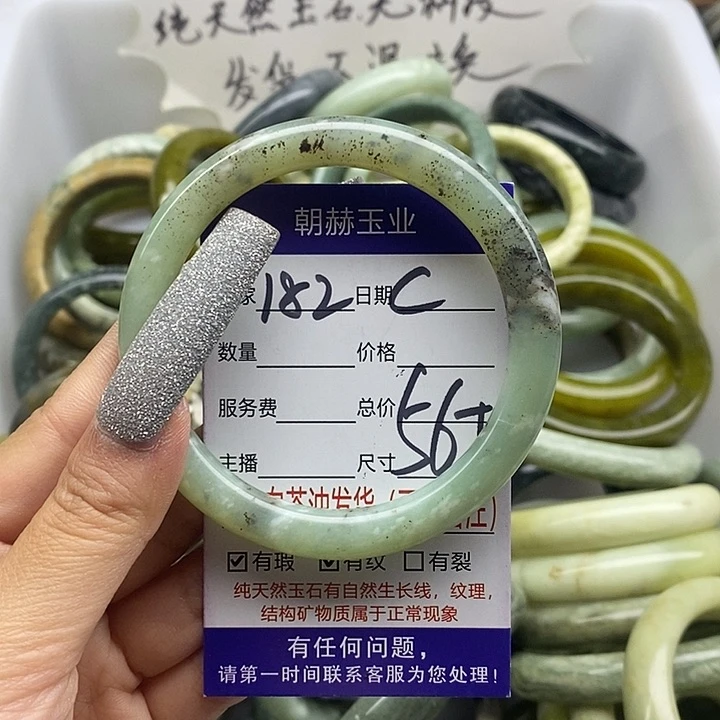 纯天然玉石.无
发货
朝赫玉业
家182 日期C
数量 价格
服务费 总价
主播 尺寸56+
茶油发货
☑有瑕 ☑有纹 ☐有裂
纯天然玉石有自然生长线，纹理，
结构矿物质属于正常现象
有任何问题，
请第一时间联系客服为您处理！